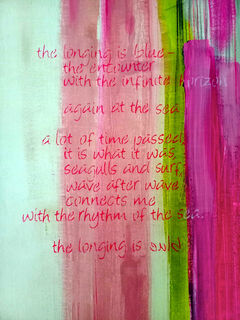 the longing is blue -
the encounter
with the infinite horizon
again at the sea
a lot of time passed
it is what it was
seagulls and surf
wave after wave
connects me
with the rhythm of the sea.
the longing is blue